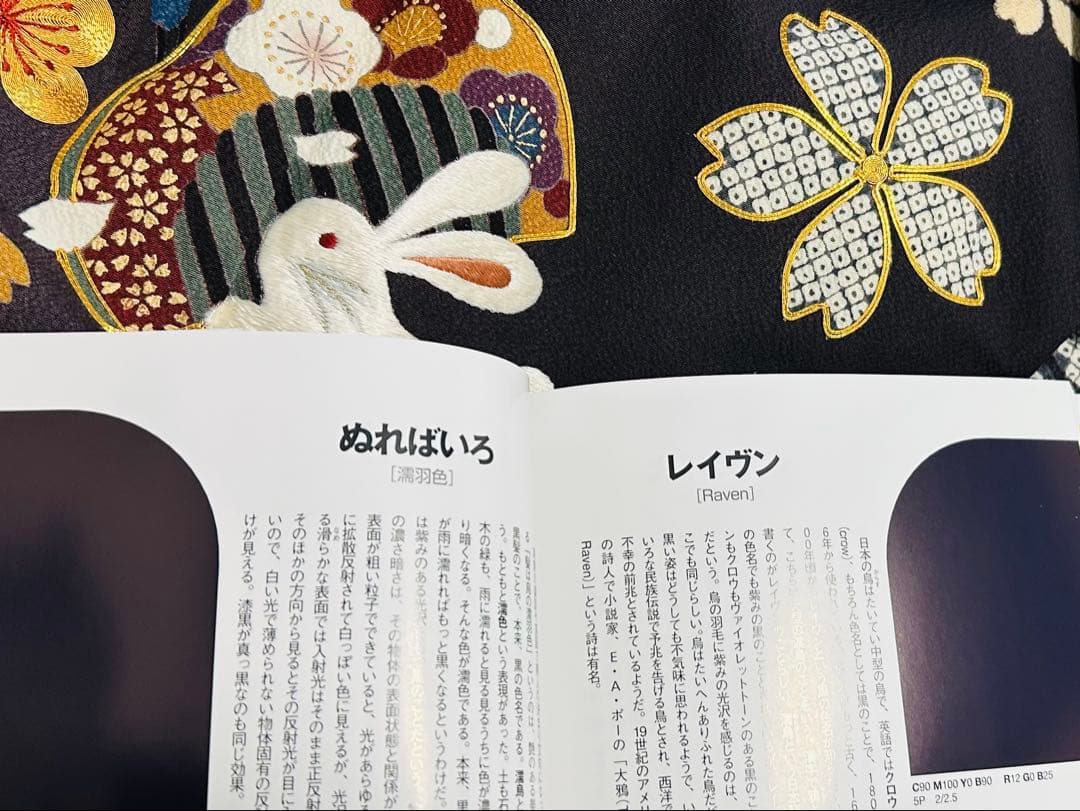 レイヴン
[Raven]
日本の烏はたいてい中型の烏で、英語ではクロウ
(crow)、もちろん色名としては黒のことで、18
6年から使わ っと古く、1
00年頃が
て、こちら
書くのがレイヴ
の色名でも紫みの黒のこと
ンもクロウもヴァイオレットトーンのある黒のこ
だという。烏の羽毛に紫みの光沢を感じるのは、
こでも同じらしい。烏はたいへんありふれた鳥だ
黒い姿はどうしても不気味に思われるようで、い
いろな民族伝説で予兆を告げる鳥とされ、西洋
不幸の前兆とされているようだ。19世紀のアメ
の詩人で小説家、E・A・ポーの「大鴉(T
Raven)」という詩は有名。
C90 M100 Y0 B90 R12 G0 B25
5P 2/2.5
ぬればいろ
[濡羽色]
る。「髪は烏の濡羽色」というのは、艶のある
黒髪のことで、本来、黒の色名である。濡烏と
う。もともと濡色という表現があった。土も石
木の緑も、雨に濡れると見る見るうちに色が濃
り暗くなる。そんな色が濡色である。本来、黒
が雨に濡れればもっと黒くなるというわけだ。
は紫みのある光沢
の濃さ暗さは、その物体の表面状態と関係が
表面が粗い粒子でできていると、光があらゆる
に拡散反射されて白っぽい色に見えるが、光沢
る滑らかな表面では入射光はそのまま正反射
そのほかの方向から見るとその反射光が目に
いので、白い光で薄められない物体固有の反
けが見える。漆黒が真っ黒なのも同じ効果。